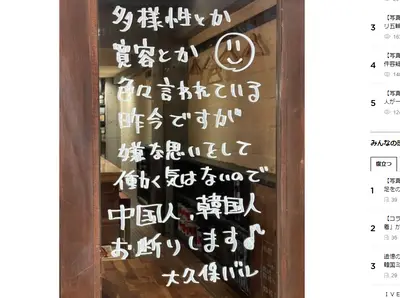 多様性とか
寛容とか
色々言われている
昨今ですが
嫌な思いをして
働く気はないので
中国人、韓国人
お断りします♪
大久保バル
3
【写真
リ五輪
4
【写真
件容疑
5
【写真
人が一
みんなの感
役立つ
1
【写真
足をの
39
2
【コラ
着」が
36
3
道徳の
韓国ミ
29
ＩＶＥ